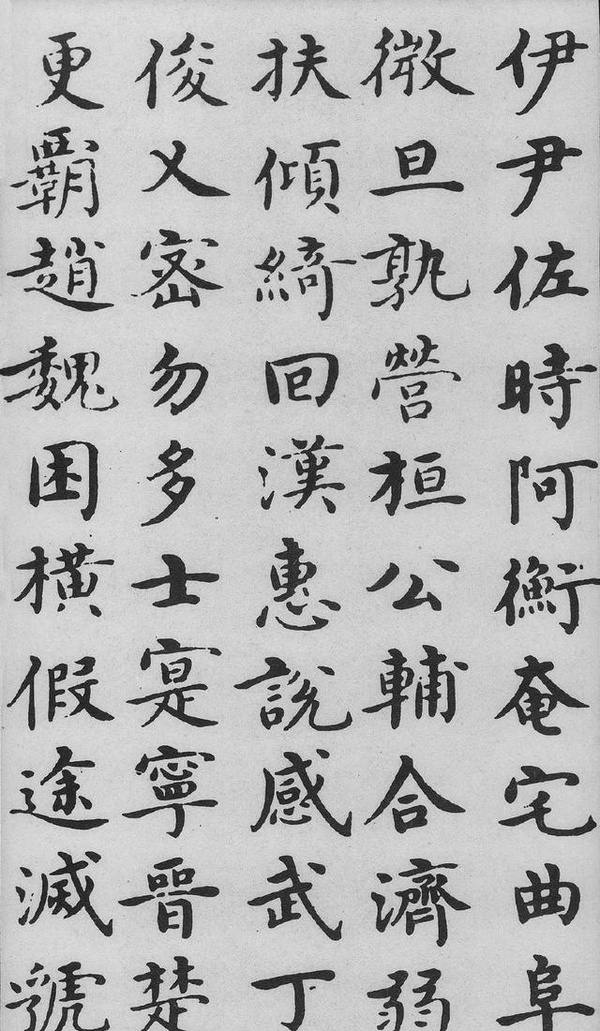 伊尹佐時阿衡奄宅曲阜
微旦孰營桓公輔合濟弱
扶傾綺回漢惠說感武丁
俊乂密勿多士寔寧晉楚
更覇趙魏困橫假途滅虢